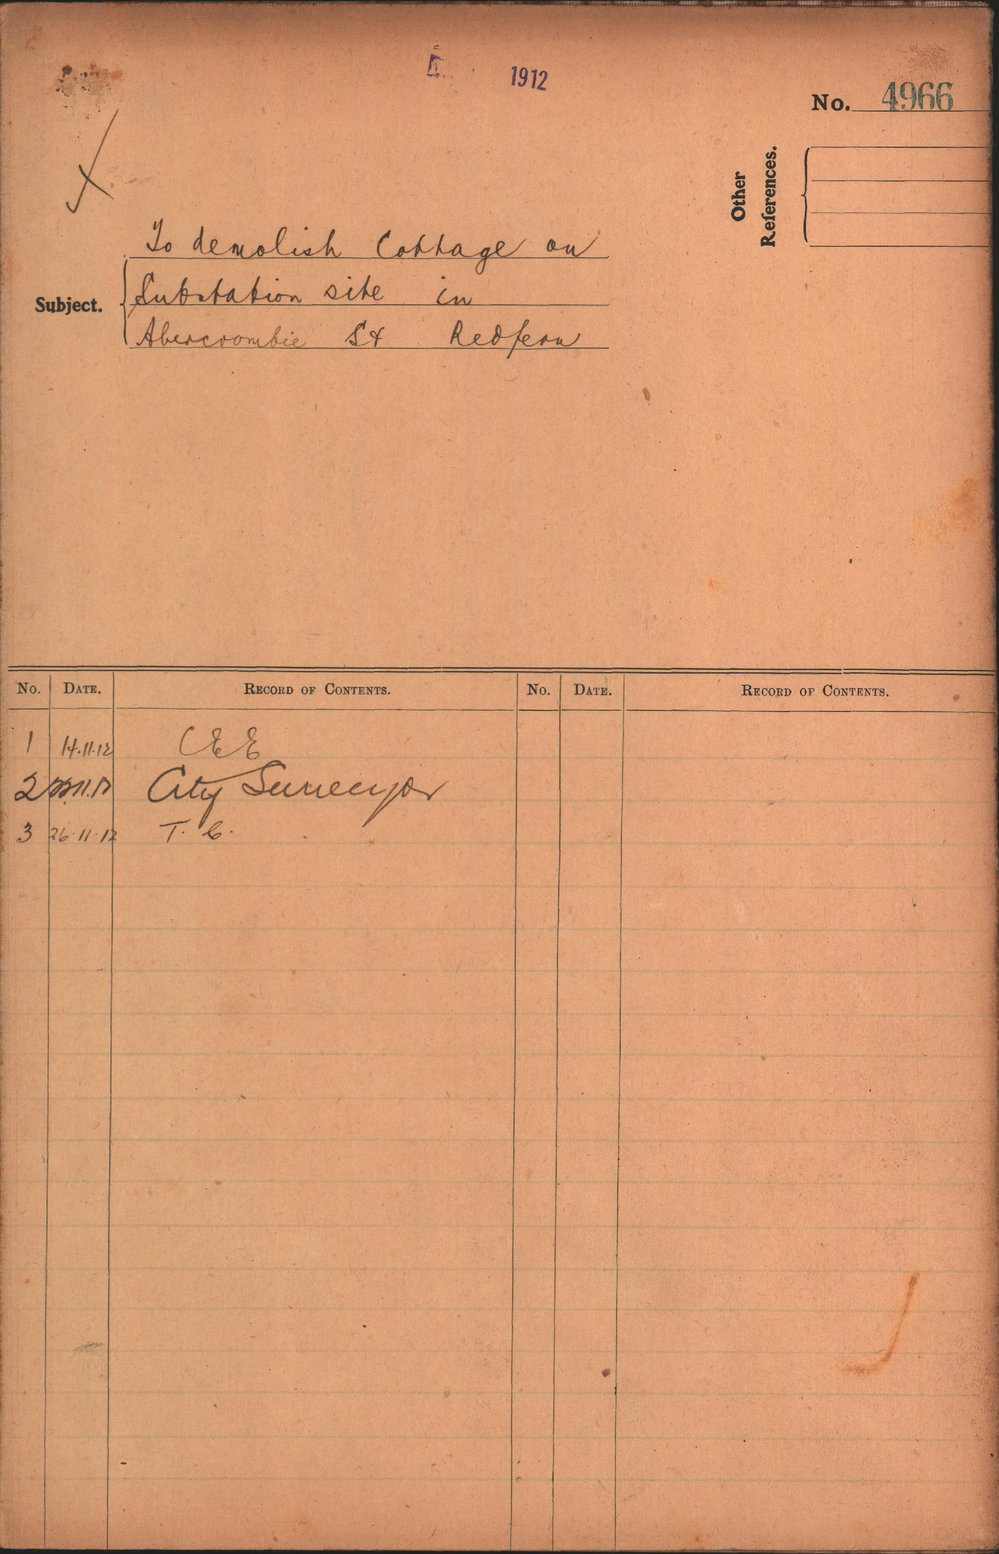 1912
No. 4966
Other
References.
To demolish Cottage on
Subject.
Substation site in
Abercroombie St Redfern
No. DATE. RECORD OF CONTENTS. No. DATE. RECORD OF CONTENTS.
1 14.11.12 CEE
2 22.11.12 City Surveyor
3 26.11.12 T. C.